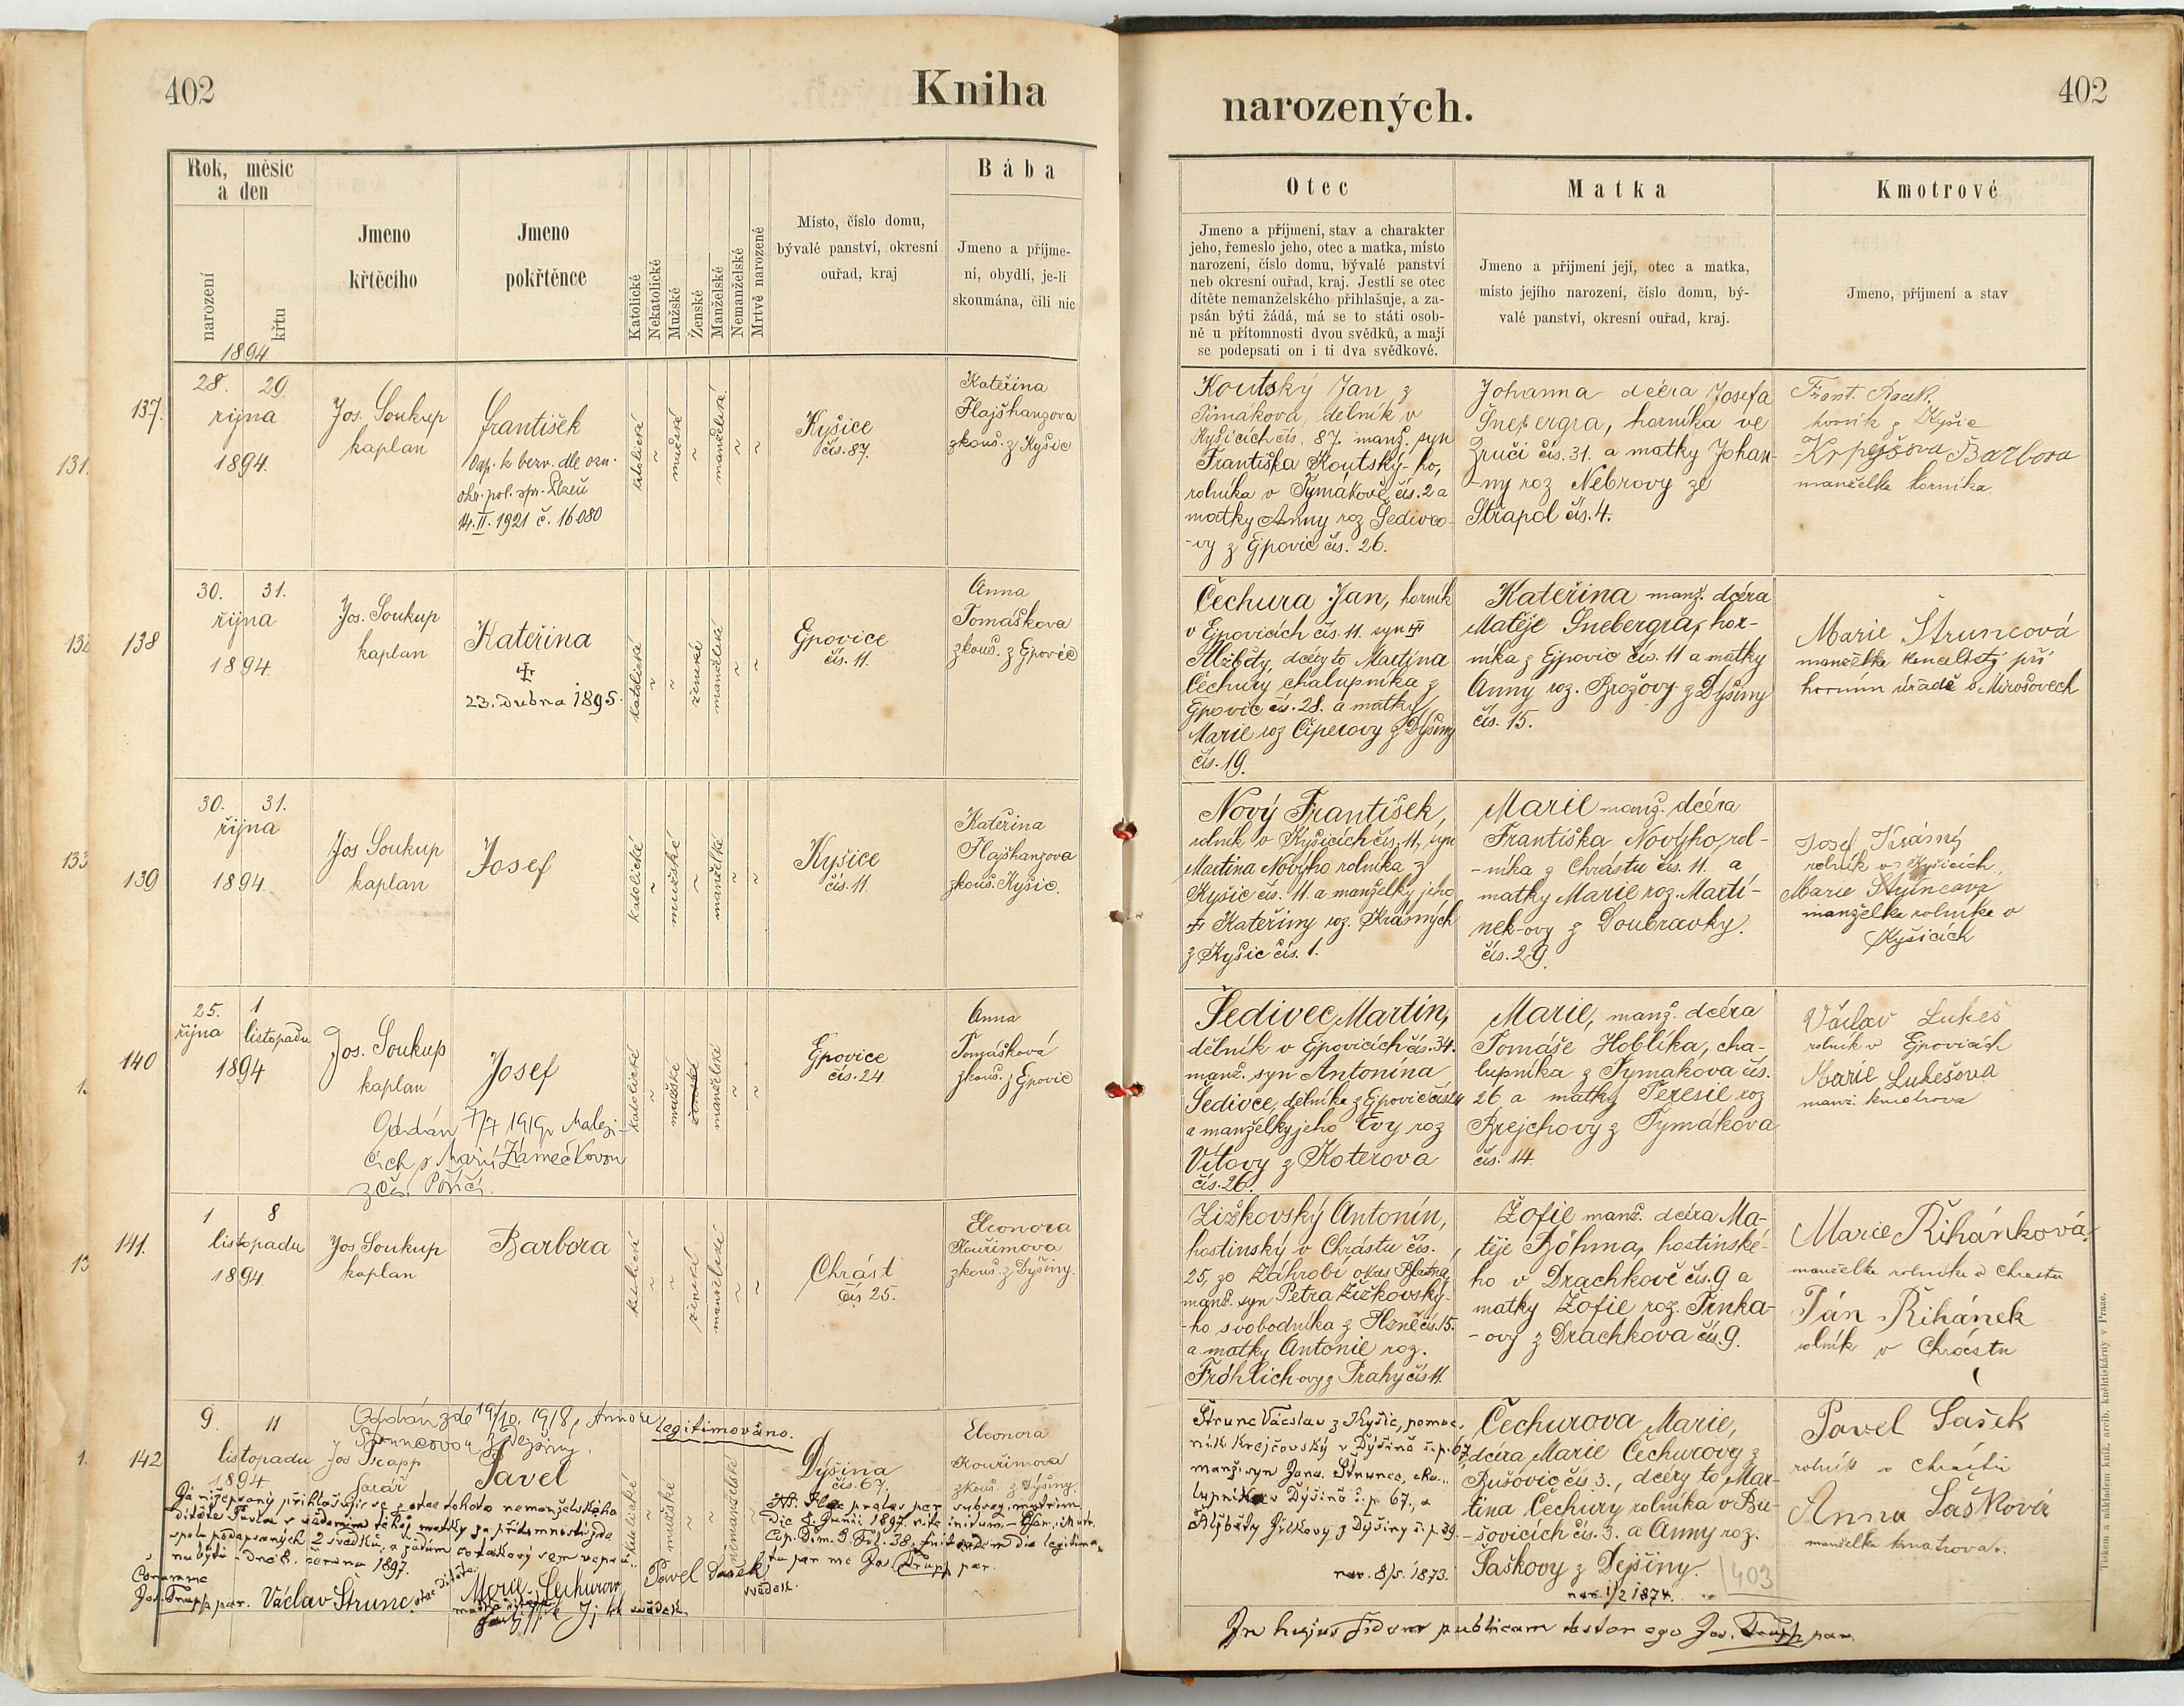 402
Kniha
narozených.
402
Rok, měsíc
a den
narození
křtu
Jmeno
křtěcího
Jmeno
pokřtěnce
Katolické
Nekatolické
Mužské
Ženské
Manželské
Nemanželské
Mrtvě narozené
Místo, číslo domu,
bývalé panství, okresní
ouřad, kraj
Bába
Jmeno a příjme-
ní, obydlí, je-li
skoumána, čili nic
Otec
Jmeno a příjmení, stav a charakter
jeho, řemeslo jeho, otec a matka, místo
narození, číslo domu, bývalé panství
neb okresní ouřad, kraj. Jestli se otec
dítěte nemanželského přihlašuje, a za-
psán býti žádá, má se to státi osob-
ně u přítomnosti dvou svědků, a mají
se podepsati on i ti dva svědkové.
Matka
Jmeno a přijmení její, otec a matka,
místo jejího narození, číslo domu, bý-
valé panství, okresní ouřad, kraj.
Kmotrové
Jmeno, příjmení a stav
1894.
131.
137.
28. 29.
října
1894.
Jos. Soukup
kaplan
František
Odp. k bezv. dle ozn.
okr. pol. spr. Plzeň
14.II.1921 č. 16080
katolické
mužské
manželské
Kyšice
čís. 87.
Kateřina
Hajšhangova
zkouš. z Kyšic
Koutský Jan z
Timákova, dělník v
Kyšicích čís. 87. manž. syn
Františka Koutský-ho,
rolníka v Tymákově čís. 2 a
matky Anny roz Šedivco-
-vy z Ejpovic čís. 26.
Johanna dcéra Josefa
Šnebergra, horníka ve
Zruči čís. 31. a matky Johan-
-ny roz Nebrovy ze
Střapol čís. 4.
Frant.
horník z Kyšic
Krpejšova Barbora
manželka horníka.
138
30. 31.
října
1894.
Jos. Soukup
kaplan
Kateřina
23. Dubna 1895.
katolické
ženské
manželské
Ejpovice
čís. 11.
Anna
Tomáškova
zkouš. z Ejpovic
Čechura Jan, horník
v Ejpovicích čís. 11. syn
Alžběty, dcéry to Martina
Čechury, chalupníka z
Ejpovic čís. 28. a matky
Marie roz Čiperovy z Dýšiny
čís. 19.
Kateřina manž. dcéra
Matěje Šnebergra, hor-
níka z Ejpovic čís. 11 a matky
Anny roz. Brožovy z Dýšiny
čís. 15.
Marie Štruncová
manželka kancelisty při
horním úřadě v Mirošovech
133
139
30. 31.
října
1894.
Jos Soukup
kaplan
Josef
katolické
mužské
manželké
Kyšice
čís. 11.
Kateřina
Hajšhangova
zkouš. Kyšic.
Nový František,
rolník v Kyšicích čís. 11, syn
Martina Nového rolníka z
Kyšic čís. 11. a manželky jeho
Kateřiny roz. Krásných
z Kyšic čís. 1.
Marie manž. dcéra
Františka Nového, rol-
-níka z Chrástu čís. 11. a
matky Marie roz. Martí-
nek-ovy z Doubravky.
čís. 29.
Josef Krásný
rolník v Kyšicích,
Marie Štruncova
manželka rolníka v
Kyšicích
140
25. 1
října listopadu
1894
Jos. Soukup
kaplan
Josef
Oddán 7/7 1919 v Malesi-
cích s Marií Zámečkovou
z Čís. Poříčí.
katolické
mužské
ženské
manželské
Ejpovice
čís. 24.
Anna
Tomášková
zkouš. z Ejpovic
Šedivec Martin,
dělník v Ejpovicích čís. 34.
manž. syn Antonína
Šedivce, dělníka z Ejpovic čís 24
a manželky jeho Evy roz
Vítovy z Koterova
čís. 26.
Marie, manž. dcéra
Tomáše Hoblíka, cha-
lupníka z Tymákova čís.
26 a matky Teresie roz
Brejchovy z Tymákova
čís. 14.
Václav Lukeš
rolník v Ejpovicích
Marie Lukešova
manž. kmotrova
141.
1 8
listopadu
1894.
Jos. Soukup
kaplan
Barbora
katolické
ženské
manželské
Chrást
čís 25.
Eleonora
Kouřimova
zkouš. z Dýšiny.
Žižkovský Antonín,
hostinský v Chrástu čís.
25, ze Záhrobí okres Blatná
manž. syn Petra Žižkovský-
-ho svobodníka z Hzně čís. 15.
a matky Antonie roz.
Fröhlichovy z Prahy čís 11.
Žofie manž. dcéra Ma-
těje Böhma, hostinské-
ho v Drachkově čís. 9 a
matky Žofie roz. Trnka-
-ovy z Drachkova čís. 9.
Marie Řihánková,
manželka rolníka v Chrástu
Ján Řihánek
rolník v Chrástu
142
9. 11
listopadu
1894
Oddán zde 19/10. 1918 s Annou
Štruncovou z Dejšiny.
legitimováno.
Jos Trapp
farář
Pavel
katolické
mužské
nemanželské
Dýšina
čís. 67,
Eleonora
Kouřimova
zkouš. z Dýšiny.
Já nížepsaný přihlašuji se za otce tohoto nemanželského
dítěte Pavla s vědomím řékoj matky za přítomnosti zde
spolu podepsaných 2 svědků, a žádám co takový sem vepsán
na býti. Dne 8. června 1897.
Coram me
Jos. Trapp par. Václav Štrunc, otec dítěte.
Marie Čechurova
matka dítěte
Pavel Sašek
svědek.
svědek.
NB. Haec proles per subseq. matrim.
die 8. Junii 1897. rite initum
Štrunc Václav z Kyšic, pomoc-
ník krejčovský v Dýšině č.p. 67,
manž. syn Jana Štrunce, cha-
lupníka v Dýšině č.p. 67., a
Alžběty Jílkovy z Dýšiny č.p. 39.
nar. 8/5. 1873.
Čechurova Marie,
dcéra Marie Čechurovy z
Bušovic čís. 3., dcéry to Mar-
tina Čechury rolníka v Bu-
-šovicích čís. 3. a Anny roz.
Šaškovy z Dejšiny.
nar. 1/2 1874.
403
Pavel Sašek
rolník v Chrástu
Anna Saškova
manželka kmotrova.
In hujus fidem publicam testor ego Jos. Trapp par.
Tiskem a nákladem kníž. arcib. knihtiskárny v Praze.